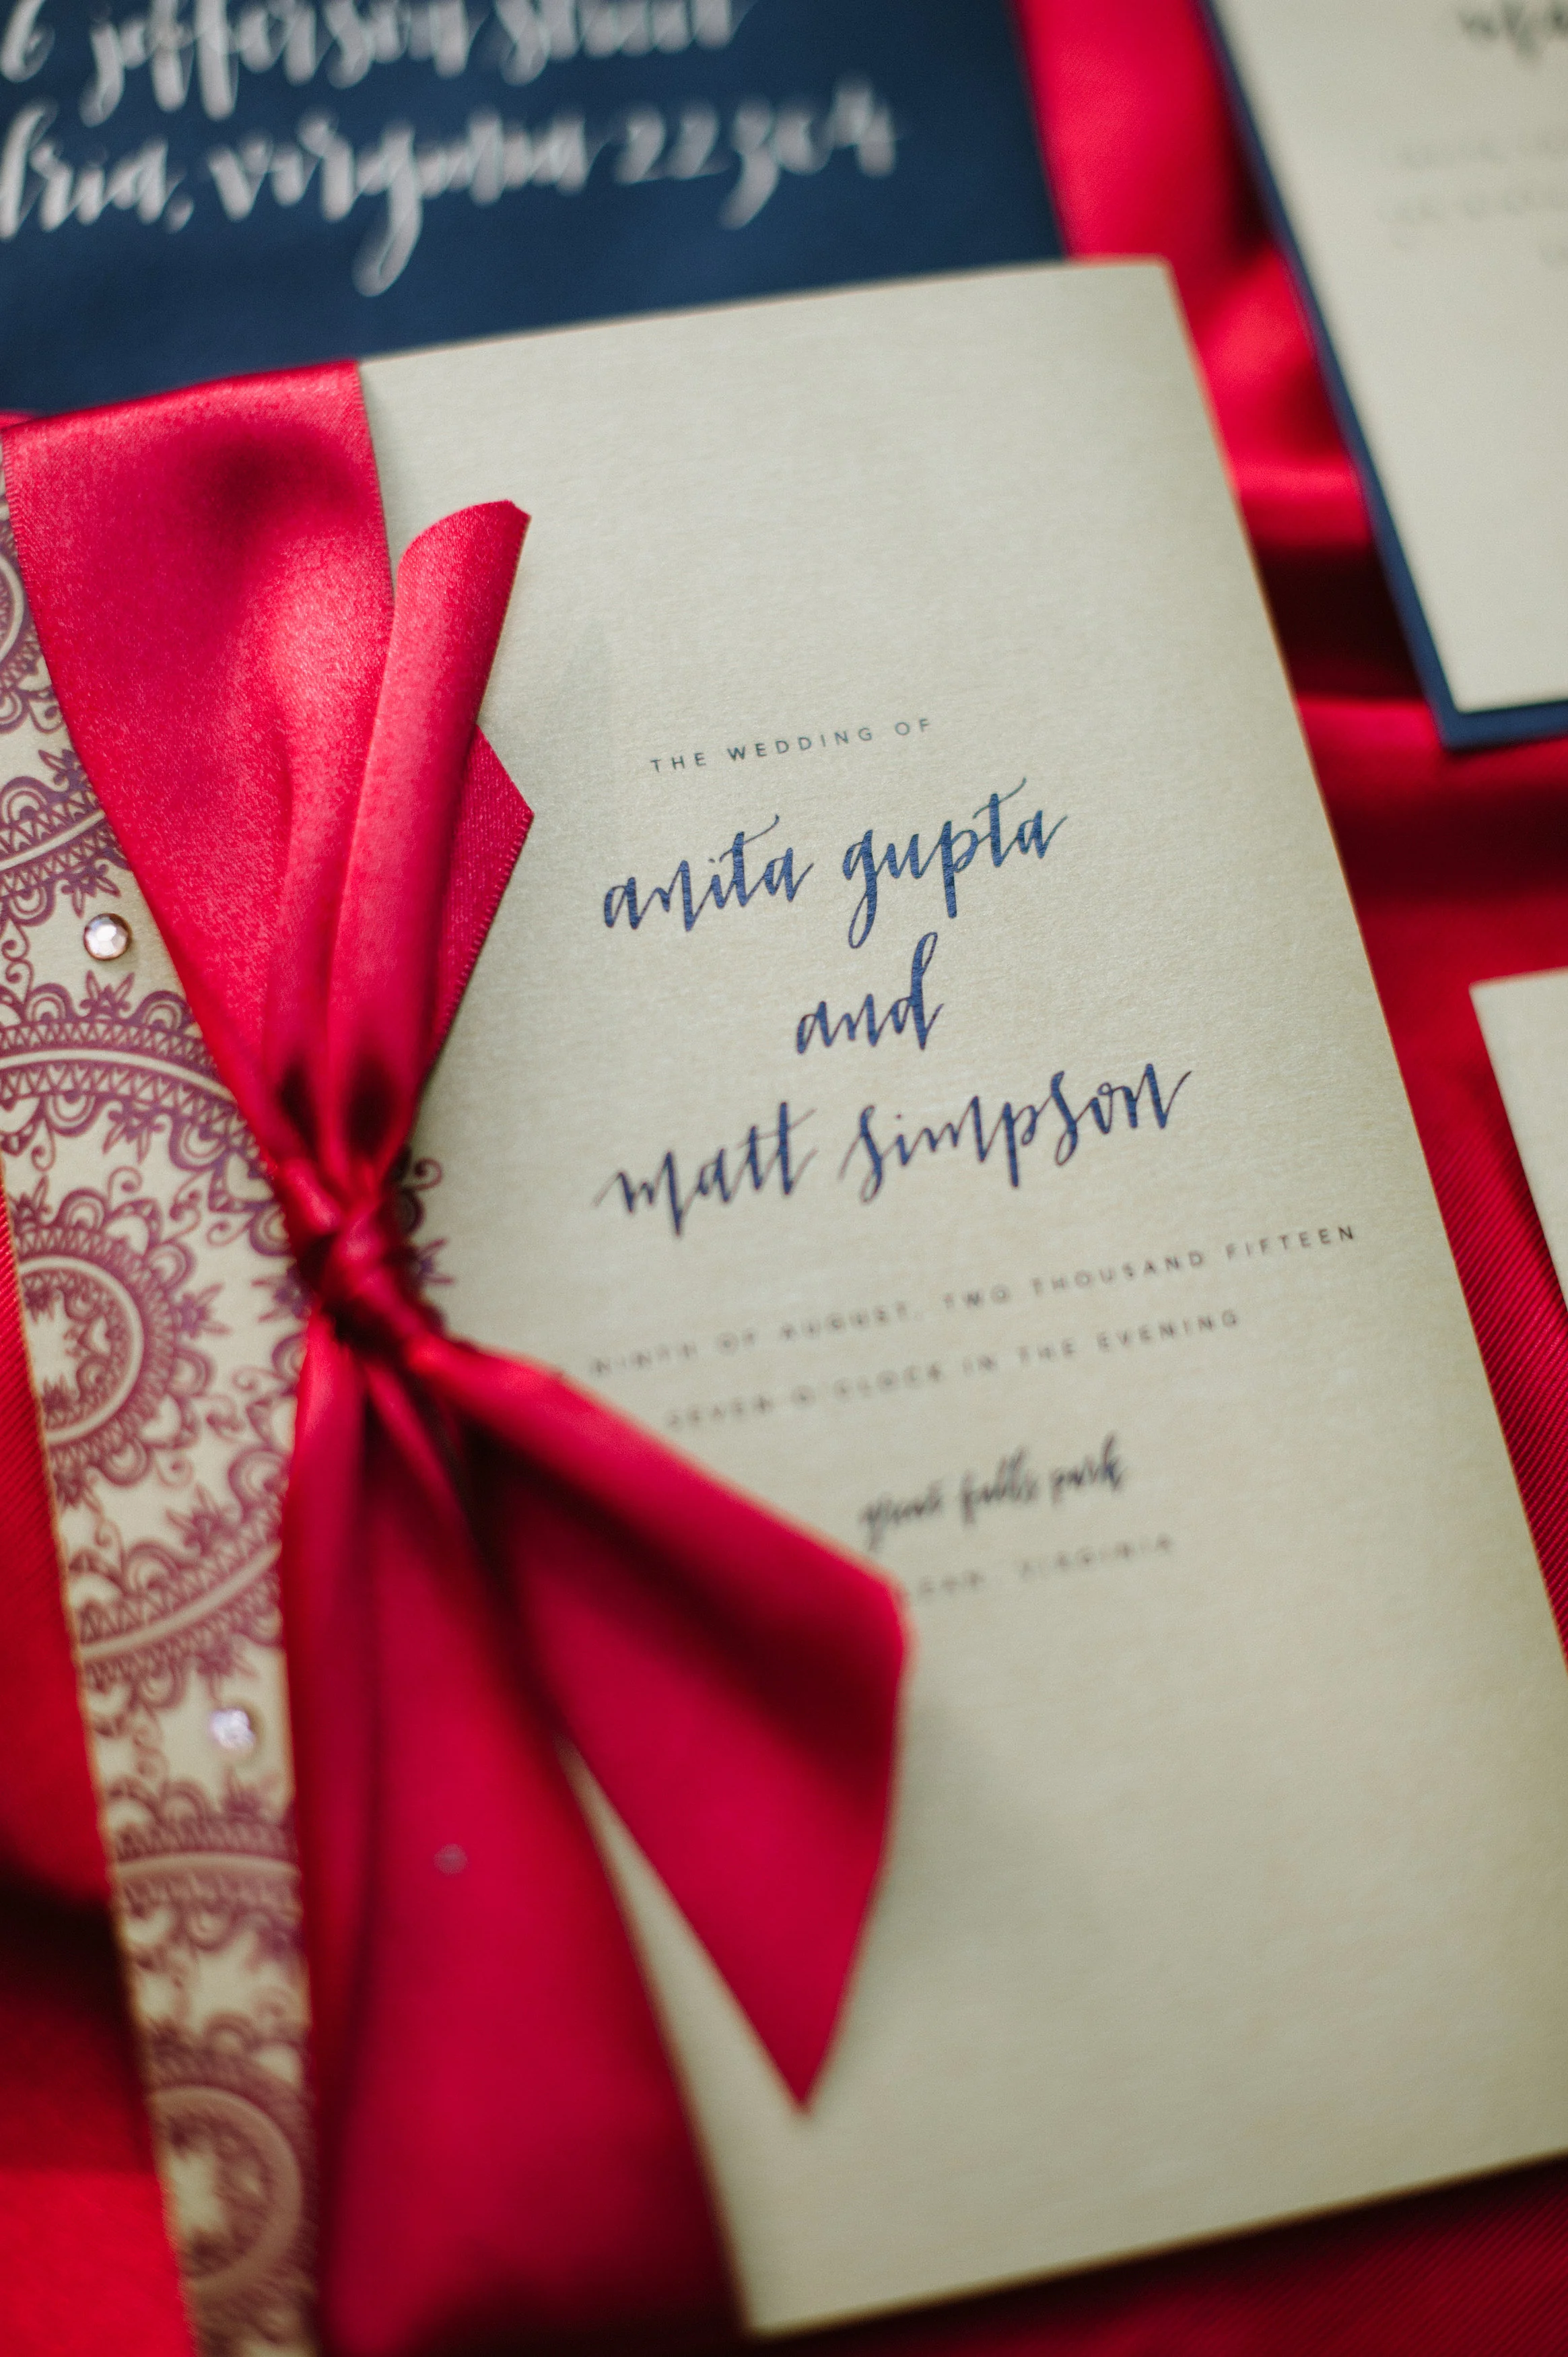 jefferson street
virginia 22304
THE WEDDING OF
anita gupta
and
matt simpson
NINTH OF AUGUST, TWO THOUSAND FIFTEEN
SEVEN O'CLOCK IN THE EVENING
great falls park
VIRGINIA